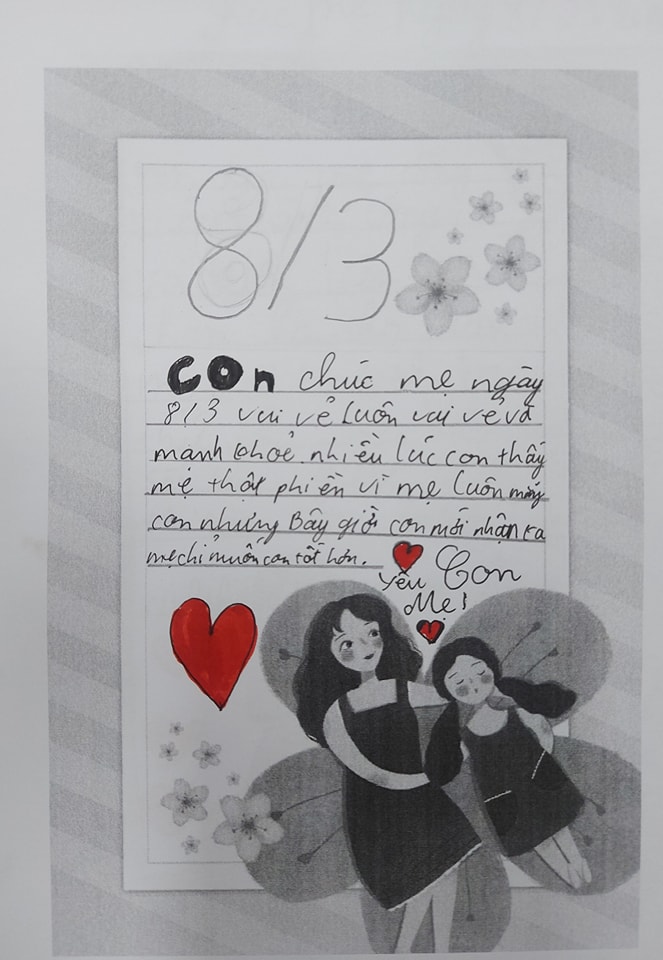 8/3
con chúc mẹ ngày
8/3 vui vẻ luôn vui vẻ và
mạnh khoẻ nhiều lúc con thấy
mẹ thật phiền vì mẹ luôn mắng
con nhưng Bây giờ con mới nhận ra
mẹ chỉ muốn con tốt hơn.
Con
yêu
Mẹ!